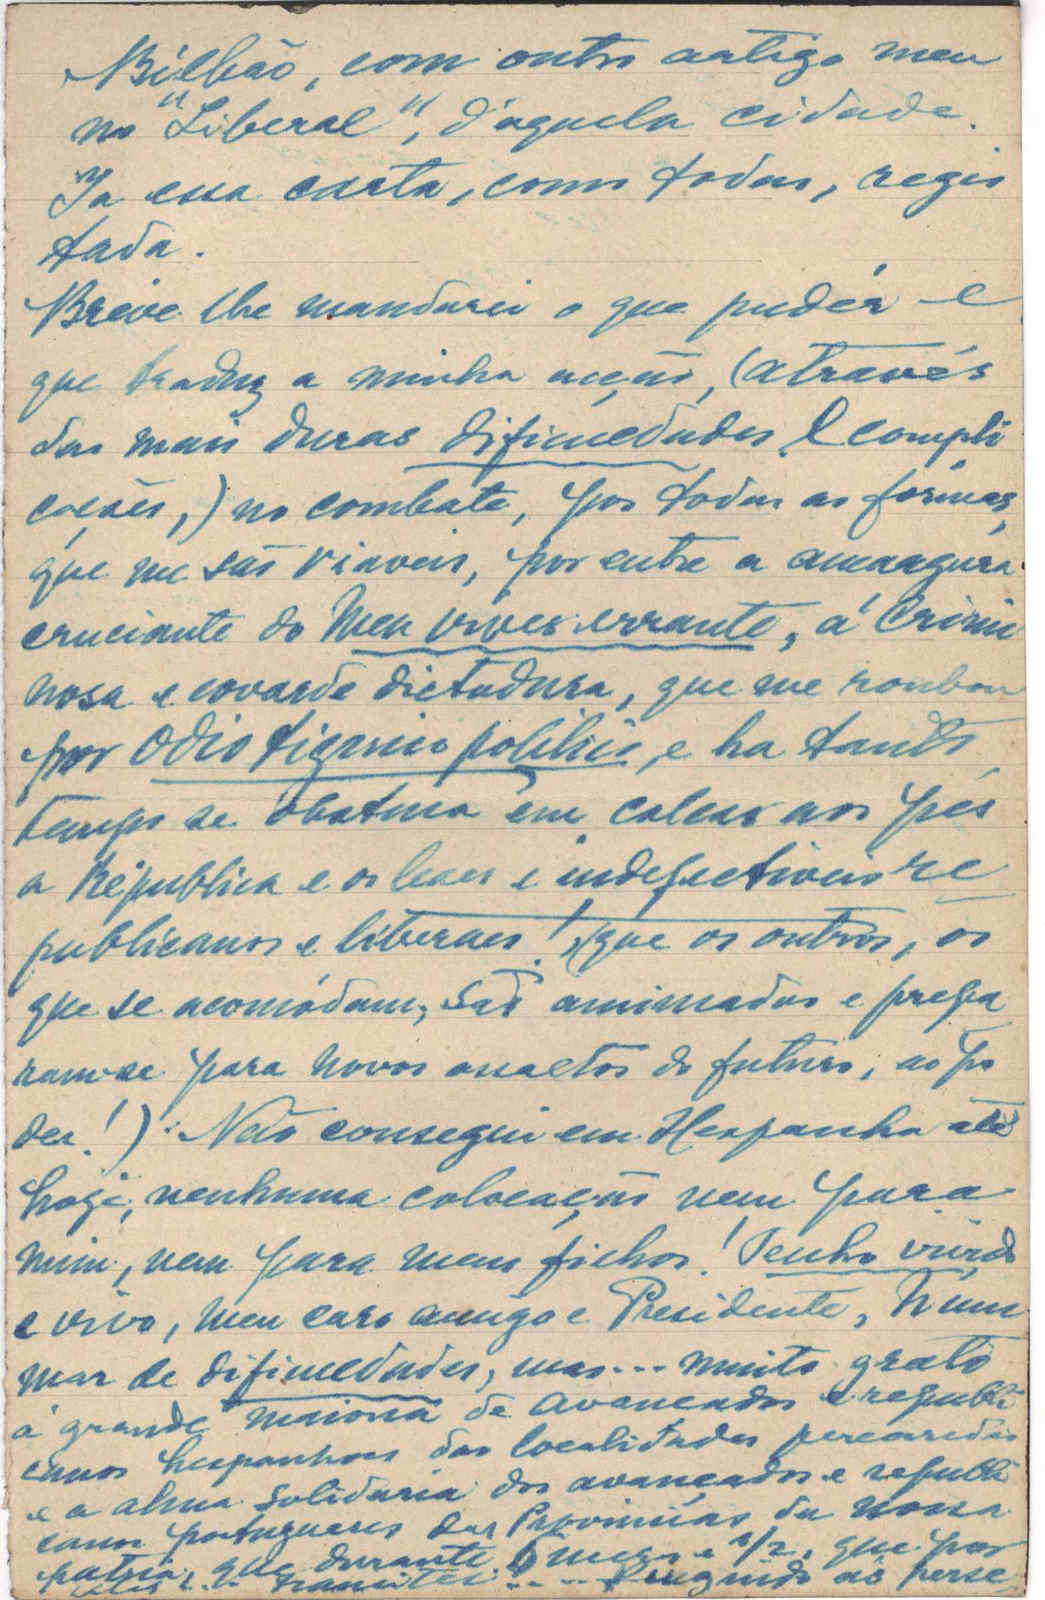 Bilbáo, com outro artigo meu
no "Liberal", d'aquela cidade.
Ia essa carta, como todas, regis
tada.
Breve lhe mandarei o que pudér e
que traduz a minha acção, (através
das mais duras dificuldades e compli
cações,) no combate, por todas as fórmas,
que me são viaveis, por entre a amargura
cruciante do meu viver errante, á crimi
nosa e covarde dictadura, que me roubou
por odio tigrino politico, e ha tanto
tempo se obstina em calcar aos pés
a Républica e os leaes e indefectiveis re
publicanos e liberaes! (que os outros, os
que se acomódam, são animados e prepa
ram-se para novos assaltos do futuro, ao po
der!) Não consegui em Hespanha até
hoje, nenhuma colocação nem para
mim, nem para meus filhos! Tenho vivido
e vivo, meu caro amigo e Presidente, n'um
mar de dificuldades, mas... muito grato
á grande maioria de avançados e republi
canos hespanhoes das localidades percorridas
e a alma solidaria dos avançados e republi
canos portuguezes das Provincias da nossa
patria, que durante 6 mezes e 1/2, que por
transitei ... fugindo ás perse